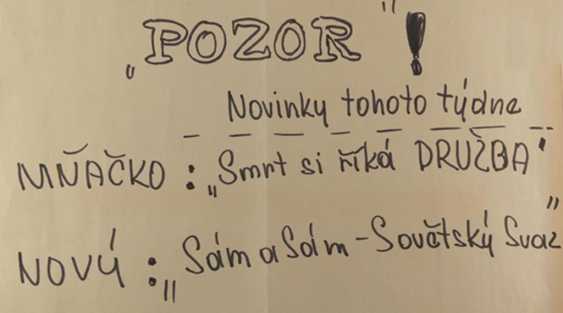 „POZOR"!
Novinky tohoto týdne
MŇAČKO : „Smrt si říká DRUŽBA"
NOVÝ : „Sám a Sám - Sovětský Svaz"